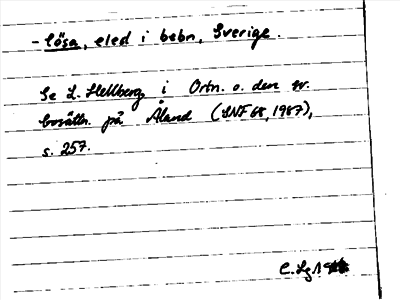 - lösa, eled i bebn, Sverige.
Se L. Hellberg i Ortn. o. den sv.
bosättn. på Åland (SNF 68, 1987),
s. 257.